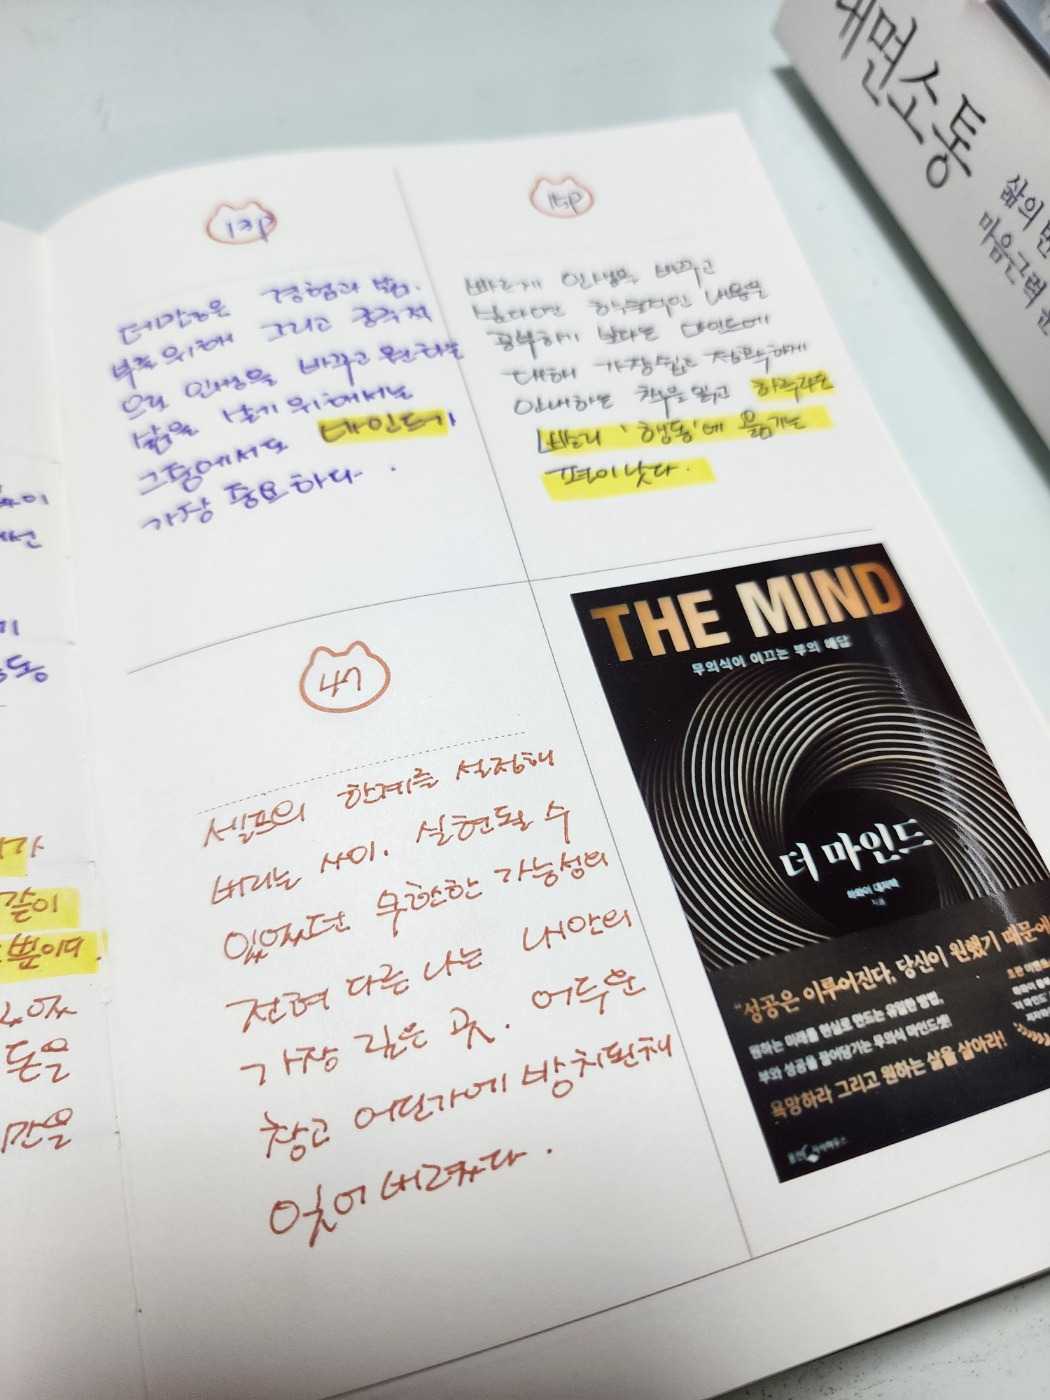 내면소통
삶의 변
마음근력
13p
경험과
부를 위해 그리고 궁극적
으로 인생을 바꾸고 원하는
삶을 살기 위해서는
그중에서도 마인드가
가장 중요하다.
15p
빠르게 인생을 바꾸고
싶다면 학술적인 내용을
공부하기 보다는 마인드에
대해 가장 쉽고 정확하게
안내하는 책을 읽고 하루라도
빨리 '행동'에 옮기는
편이 낫다.
47
셀프의 한계를 설정해
버리는 사이. 실현될 수
있었던 무한한 가능성의
전혀 다른 나는 내 안의
가장 깊은 곳. 어두운
창고 어딘가에 방치된 채
잊어버려졌다.
THE MIND
무의식이 이끄는 부의 해답
더 마인드
하와이 대저택
지음
"성공은 이루어진다, 당신이 원했기 때문에
원하는 미래를 현실로 만드는 유일한 방법,
부와 성공을 끌어당기는 무의식 마인드셋!
욕망하라 그리고 원하는 삶을 살아라!
가
같이
뿐이다.
돈을